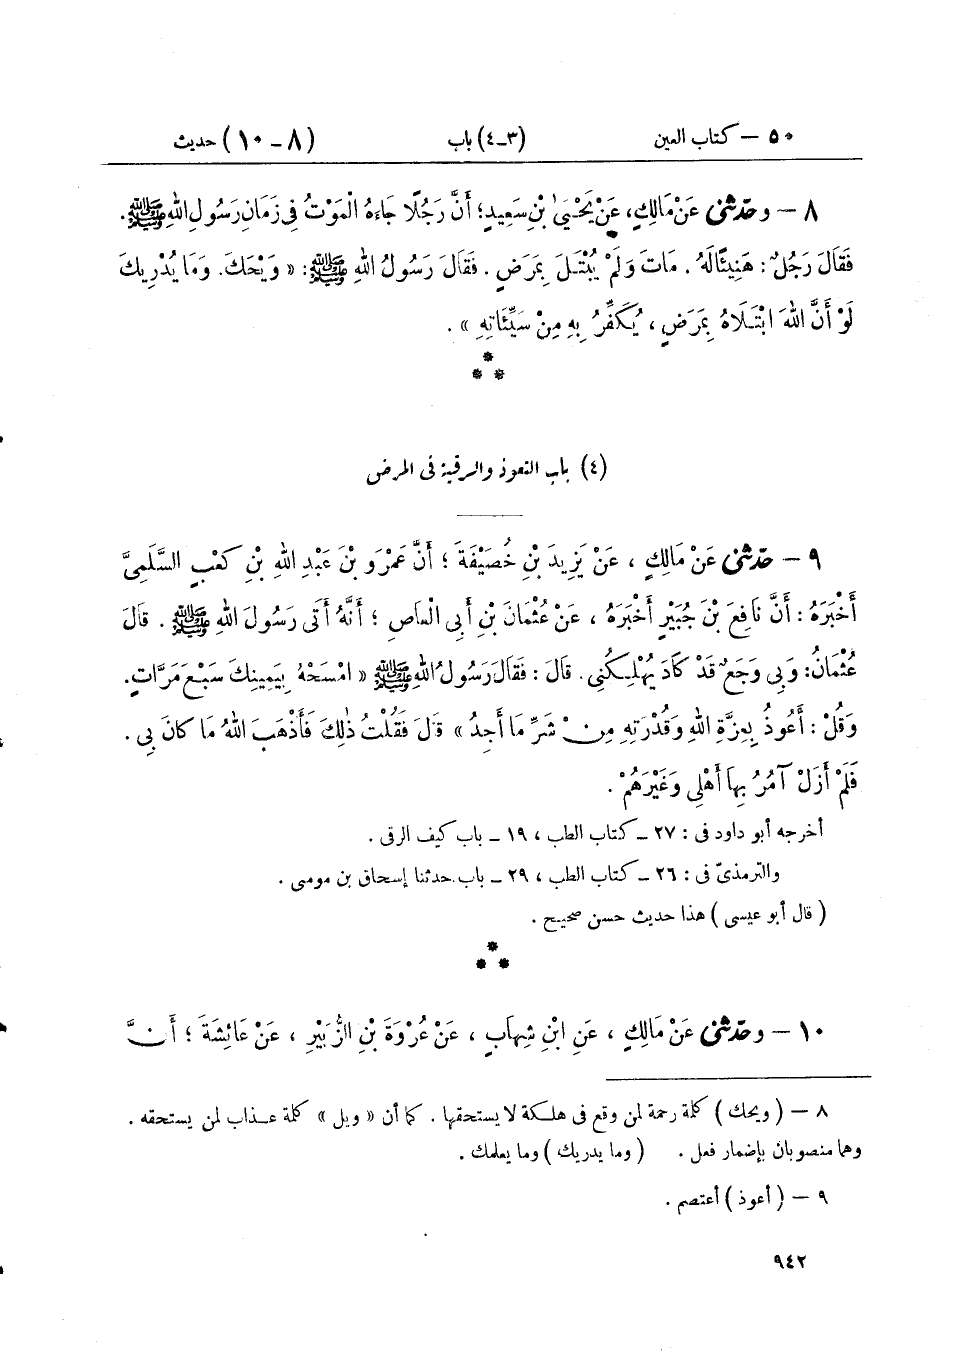 ٥٠ – كتاب العين (٣-٤) باب (٨-١٠) حديث
٨ – وحَدَّثَنِي عَنْ مَالِكٍ، عَنْ يَحْيَىٰ بْنِ سَعِيدٍ؛ أَنَّ رَجُلًا جَاءَهُ الْمَوْتُ فِي زَمَانِ رَسُولِ اللهِ ﷺ.
فَقَالَ رَجُلٌ: هَنِيئًا لَهُ. مَاتَ وَلَمْ يُبْتَلَ بِمَرَضٍ. فَقَالَ رَسُولُ اللهِ ﷺ: «وَيْحَكَ. وَمَا يُدْرِيكَ
لَوْ أَنَّ اللهَ ابْتَلَاهُ بِمَرَضٍ، يُكَفِّرُ بِهِ مِنْ سَيِّئَاتِهِ».
*
* *
(٤) باب التعوذ والرقية فى المرض
٩ – حَدَّثَنِي عَنْ مَالِكٍ، عَنْ يَزِيدَ بْنِ خُصَيْفَةَ؛ أَنَّ عَمْرَو بْنَ عَبْدِ اللهِ بْنِ كَعْبٍ السَّلَمِيَّ
أَخْبَرَهُ: أَنَّ نَافِعَ بْنَ جُبَيْرٍ أَخْبَرَهُ، عَنْ عُثْمَانَ بْنِ أَبِي الْعاصِ؛ أَنَّهُ أَتَى رَسُولَ اللهِ ﷺ. قَالَ
عُثْمَانُ: وَبِي وَجَعٌ قَدْ كَادَ يُهْلِكُنِي. قَالَ: فَقَالَ رَسُولُ اللهِ ﷺ «امْسَحْهُ بِيَمِينِكَ سَبْعَ مَرَّاتٍ.
وَقُلْ: أَعُوذُ بِعِزَّةِ اللهِ وَقُدْرَتِهِ مِنْ شَرِّ مَا أَجِدُ» قَالَ فَقُلْتُ ذٰلِكَ فَأَذْهَبَ اللهُ مَا كَانَ بِي.
فَلَمْ أَزَلْ آمُرُ بِهَا أَهْلِي وَغَيْرَهُمْ.
أخرجه أبو داود فى: ٢٧ – كتاب الطب، ١٩ – باب كيف الرقى.
والترمذىّ فى: ٢٦ – كتاب الطب، ٢٩ – باب حدثنا إسحاق بن موسى.
(قال أبو عيسى) هذا حديث حسن صحيح.
*
* *
١٠ – وحَدَّثَنِي عَنْ مَالِكٍ، عَنِ ابْنِ شِهَابٍ، عَنْ عُرْوَةَ بْنِ الزُّبَيْرِ، عَنْ عَائِشَةَ؛ أَنَّ
٨ – (ويحك) كلمة رحمة لمن وقع فى هلكة لا يستحقها. كما أن «ويل» كلمة عذاب لمن يستحقه.
وهما منصوبان بإضمار فعل. (وما يدريك) وما يعلمك.
٩ – (أعوذ) أعتصم.
٩٤٢